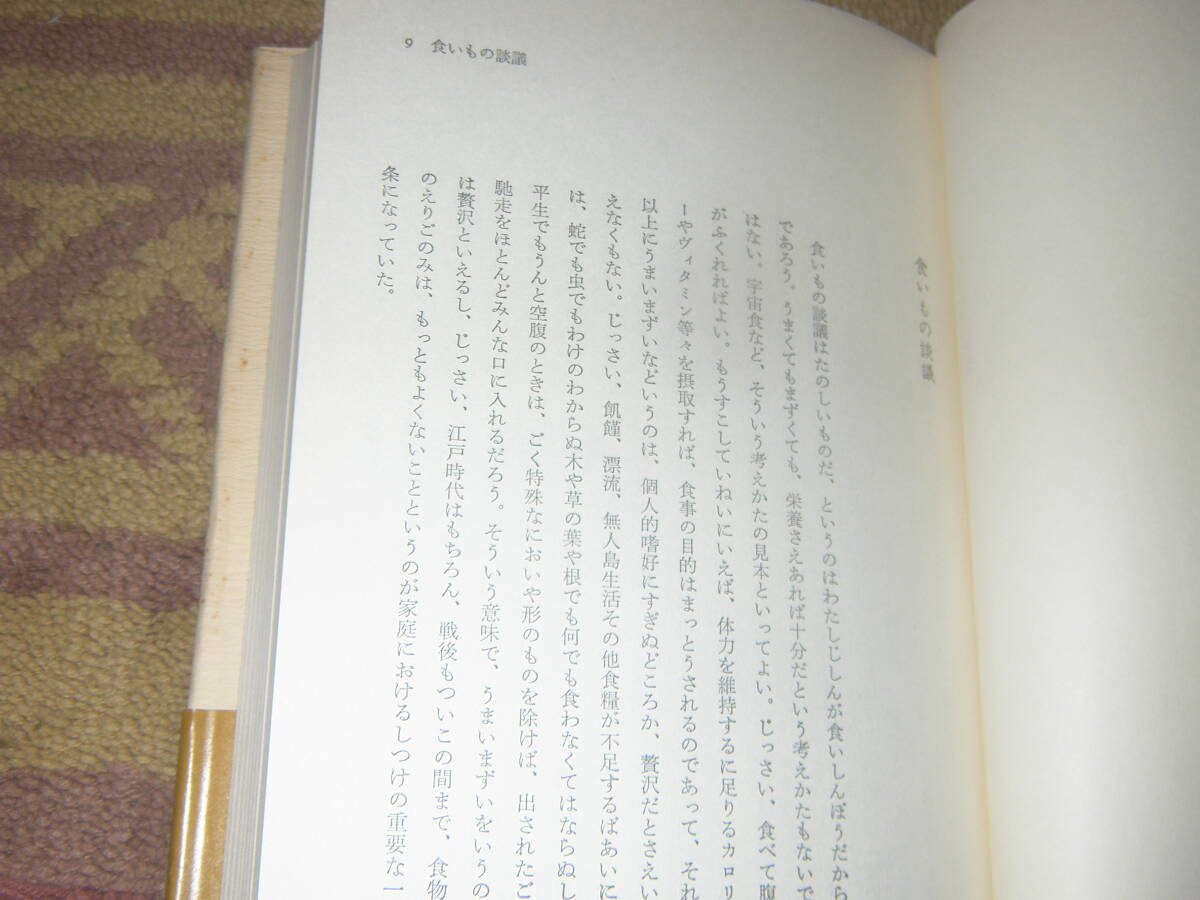 9 食いもの談議
食いもの談議
食いもの談議はたのしいものだ、というのはわたしじしんが食いしんぼうだから
であろう。うまくてもまずくても、栄養さえあれば十分だという考えかたもないで
はない。宇宙食など、そういう考えかたの見本といってよい。じっさい、食べて腹
がふくれればよい。もうすこしていねいにいえば、体力を維持するに足りるカロリ
ーやヴィタミン等々を摂取すれば、食事の目的はまっとうされるのであって、それ
以上にうまいまずいなどというのは、個人的嗜好にすぎぬどころか、贅沢だとさえい
えなくもない。じっさい、飢饉、漂流、無人島生活その他食糧が不足するばあいに
は、蛇でも虫でもわけのわからぬ木や草の葉や根でも何でも食わなくてはならぬし
平生でもうんと空腹のときは、ごく特殊なにおいや形のものを除けば、出されたご
馳走をほとんどみんな口に入れるだろう。そういう意味で、うまいまずいをいうの
は贅沢といえるし、じっさい、江戸時代はもちろん、戦後もついこの間まで、食物
のえりごのみは、もっともよくないことというのが家庭におけるしつけの重要な一
条になっていた。